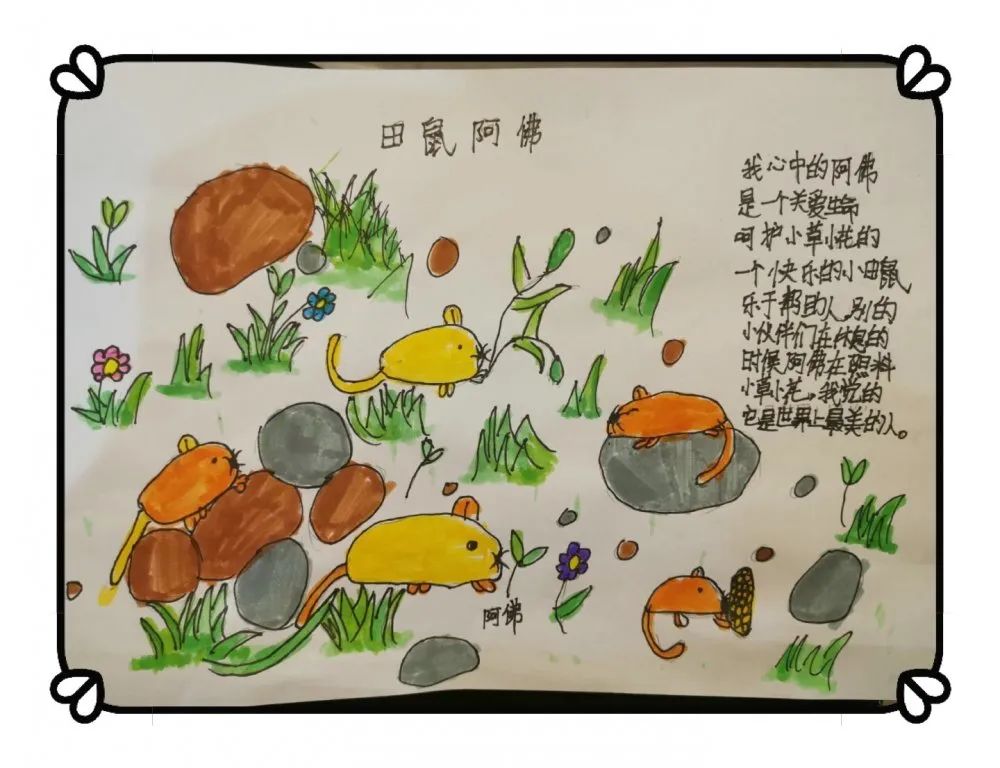 田鼠阿佛
我心中的阿佛
是一个关爱生命
呵护小草小花的
一个快乐的小田鼠
乐于帮助人,别的
小伙伴们在休息的
时候阿佛在照料
小草小花。我觉的
它是世界上最美的人。
阿佛